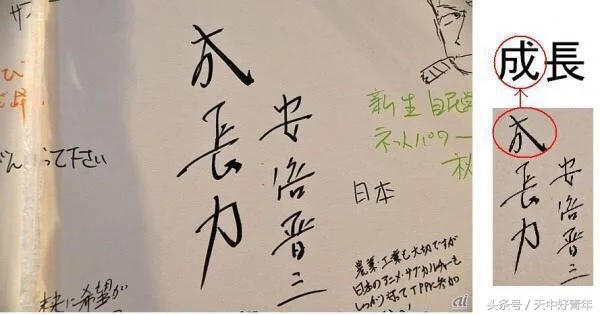 って下さい
未来に希望が
成長力
安倍晋三
新生 自民党
ネットパワー
日本
農業、工業も大切ですが
日本のアニメ・サブカルチャーも
TPPに参加
ai
成長
成長力
安倍晋三
头条号／天中好青年